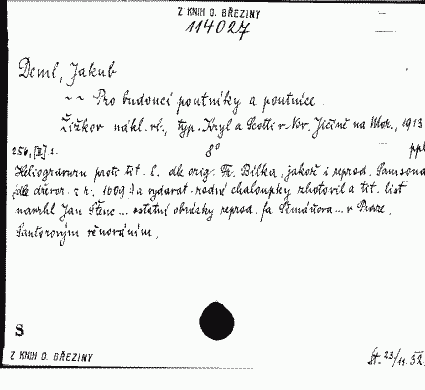 Z KNIH O. BŘEZINY
114027
Deml, Jakub
~ ~ Pro budoucí poutníky a poutnice.
Žižkov nákl. vl., typ. Kryl a Scotti v Nov. Jičíně na Mor., 1913
256, [II] s. 8°
Heliogravuru proti tit. l. dle orig. Fr. Bílka, jakož i reprod. Samsona
(dle dřevor. z r. 1609) a vydavat. rodné chaloupky zhotovil a tit. list
navrhl Jan Štenc ... ostatní obrázky reprod. fa ... v Praze.
S autorovým věnováním.
S
Z KNIH O. BŘEZINY
Št. 23/11. 32.